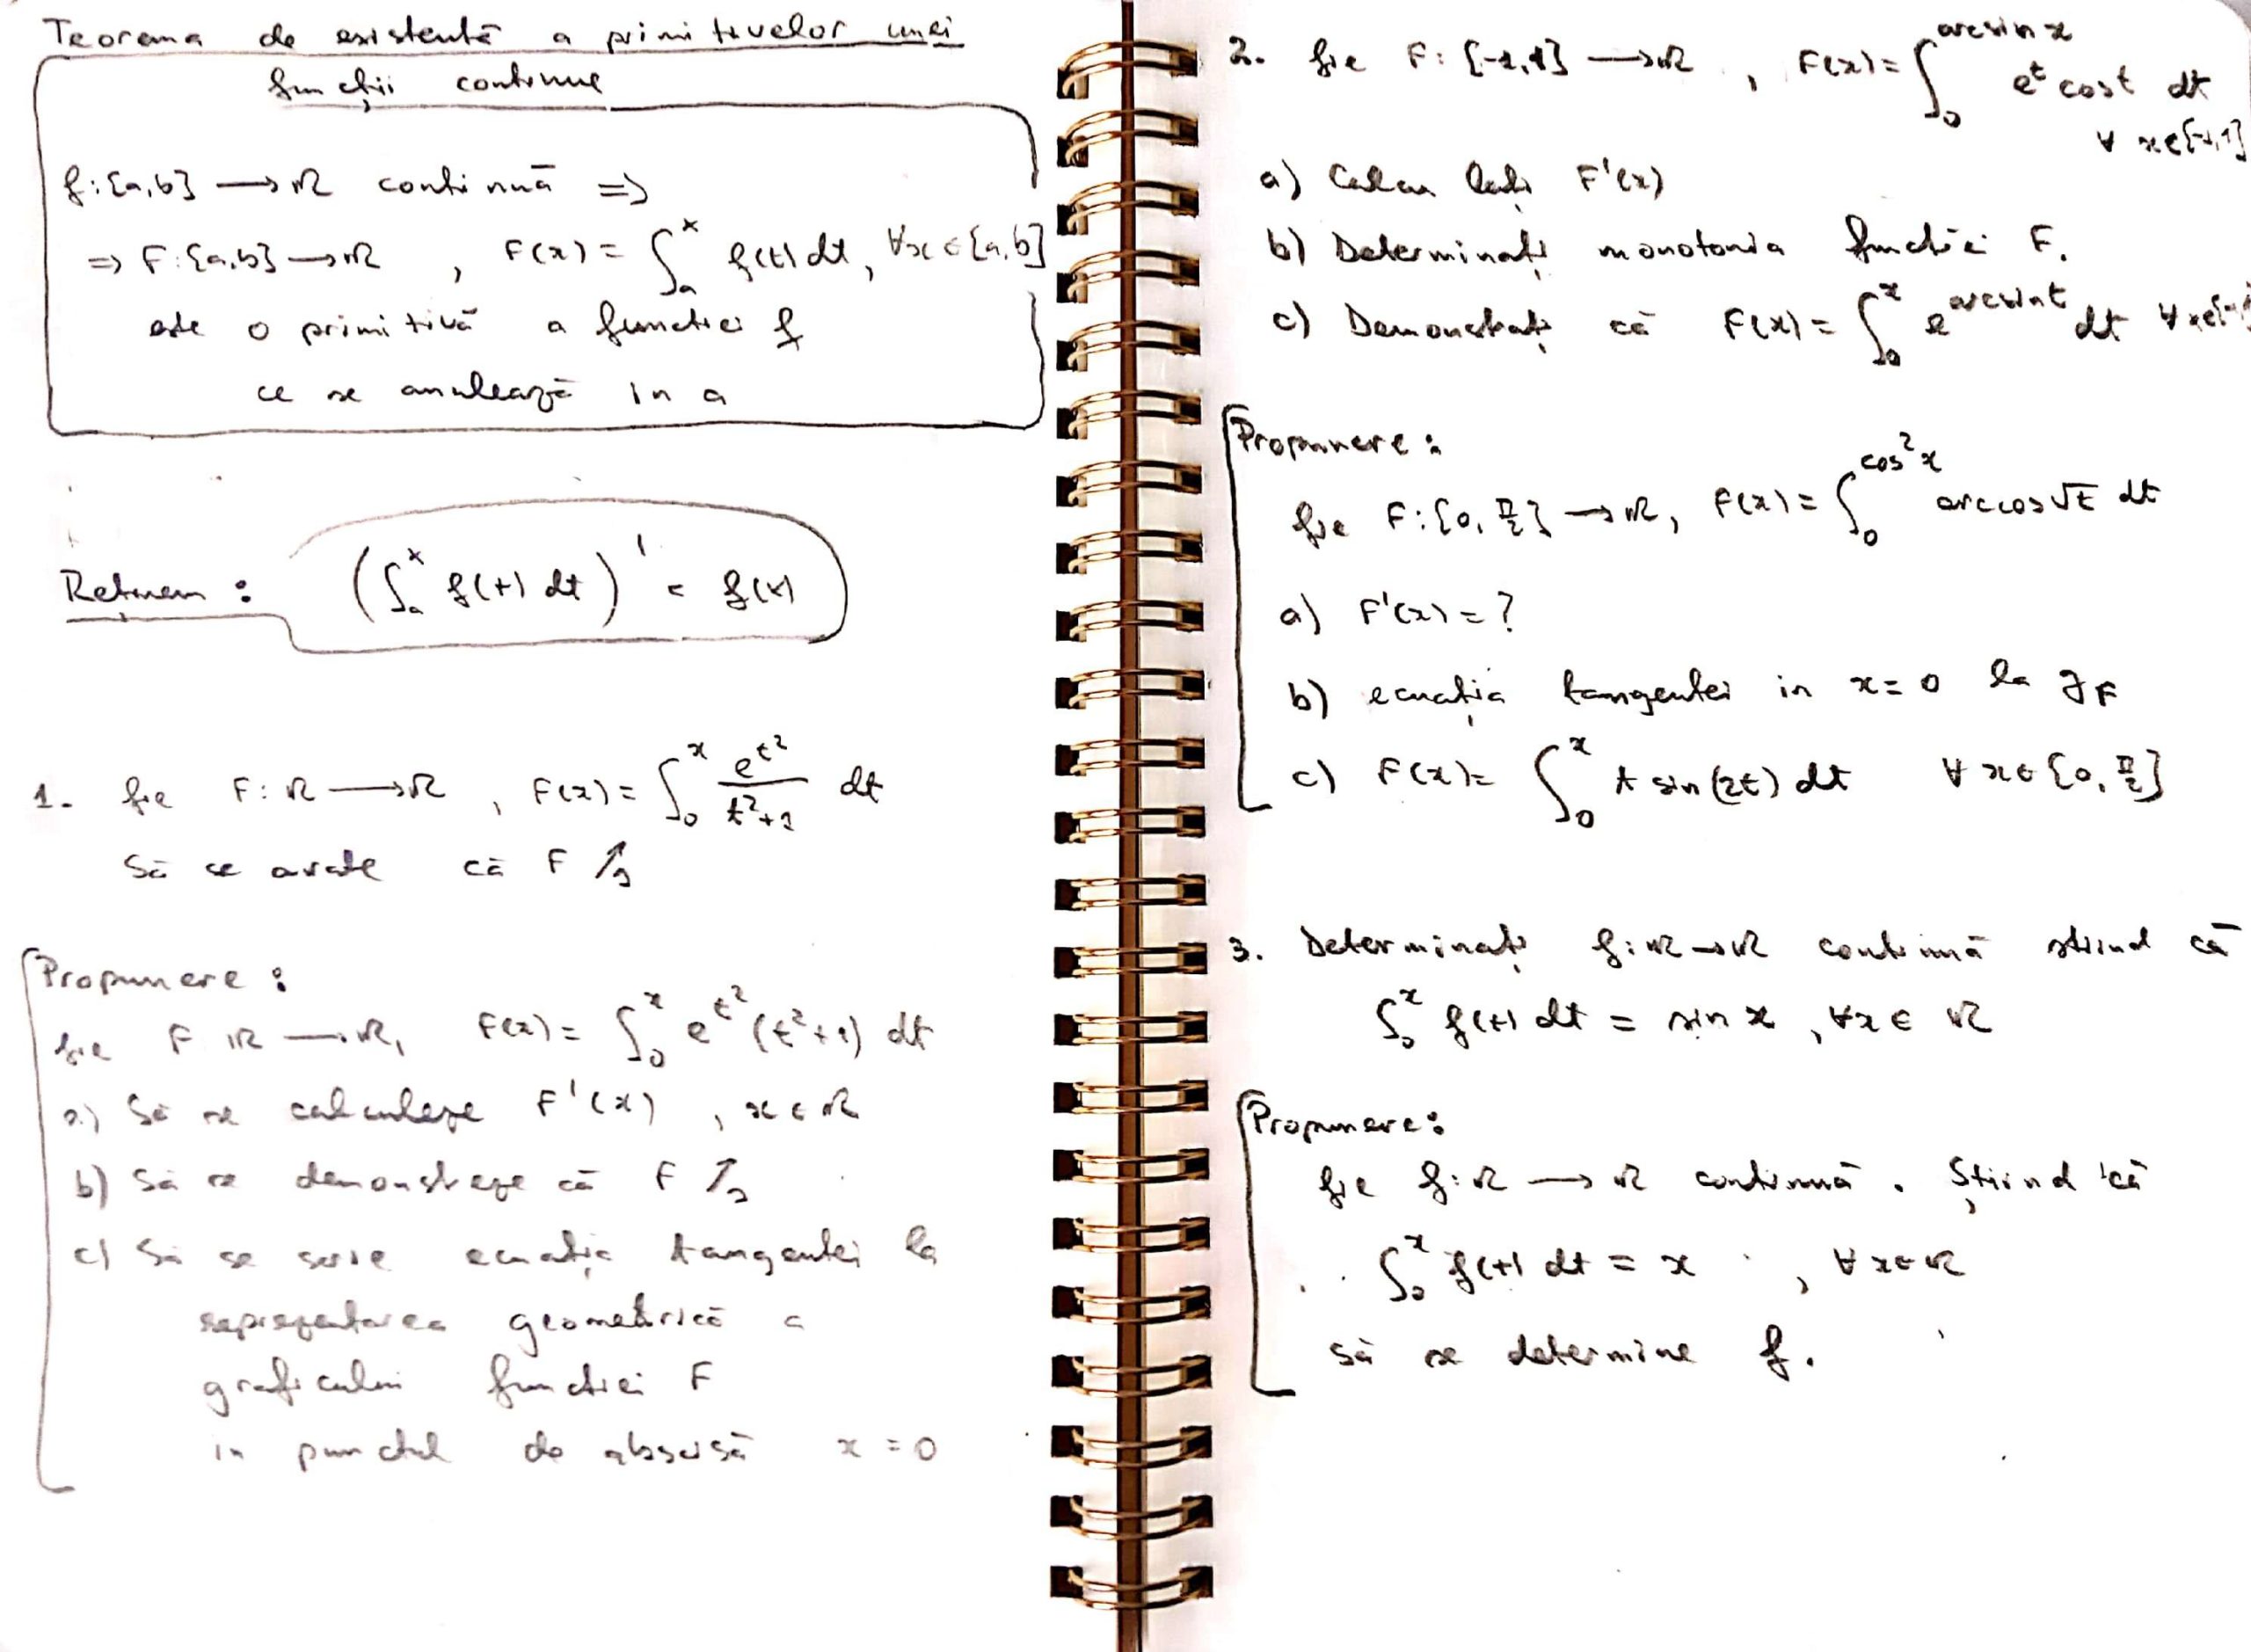 Teorema de existență a primitivelor unei
funcții continue
f:[a,b] → ℝ continuă ⇒
⇒ F:[a,b] → ℝ , F(x) = ∫ₐˣ f(t) dt, ∀x ∈ [a,b]
este o primitivă a funcției f
ce se anulează în a
Reținem : (∫ₐˣ f(t) dt)' = f(x)
1. fie F: ℝ → ℝ , F(x) = ∫₀ˣ e^(t²)/(t²+1) dt
Să se arate că F ↗s
Propunere :
fie F ℝ → ℝ, F(x) = ∫₀ˣ e^(t²) (t²+1) dt
a) Să se calculeze F'(x) , x ∈ ℝ
b) Să se demonstreze că F ↗s
c) Să se scrie ecuația tangentei la
reprezentarea geometrică a
graficului funcției F
in punctul de abscisă x = 0
2. fie F: [-1,1] → ℝ , F(x) = ∫₀^(arcsin x) e^t cos t dt
∀ x∈[-1,1]
a) Calculați F'(x)
b) Determinați monotonia funcției F.
c) Demonstrați că F(x) = ∫₀ˣ e^(arcsin t) dt ∀x∈[-1
Propunere :
fie F: [0, π/2] → ℝ, F(x) = ∫₀^(cos² x) arccos √t dt
a) F'(x) = ?
b) ecuația tangentei in x = 0 la g_F
c) F(x) = ∫₀ˣ t sin(2t) dt ∀ x∈[0, π/2]
3. Determinați f: ℝ → ℝ continuă știind că
∫₀ˣ f(t) dt = sin x , ∀x ∈ ℝ
Propunere :
fie f: ℝ → ℝ continuă . Știind că
∫₀ˣ f(t) dt = x , ∀x∈ℝ
să se determine f.